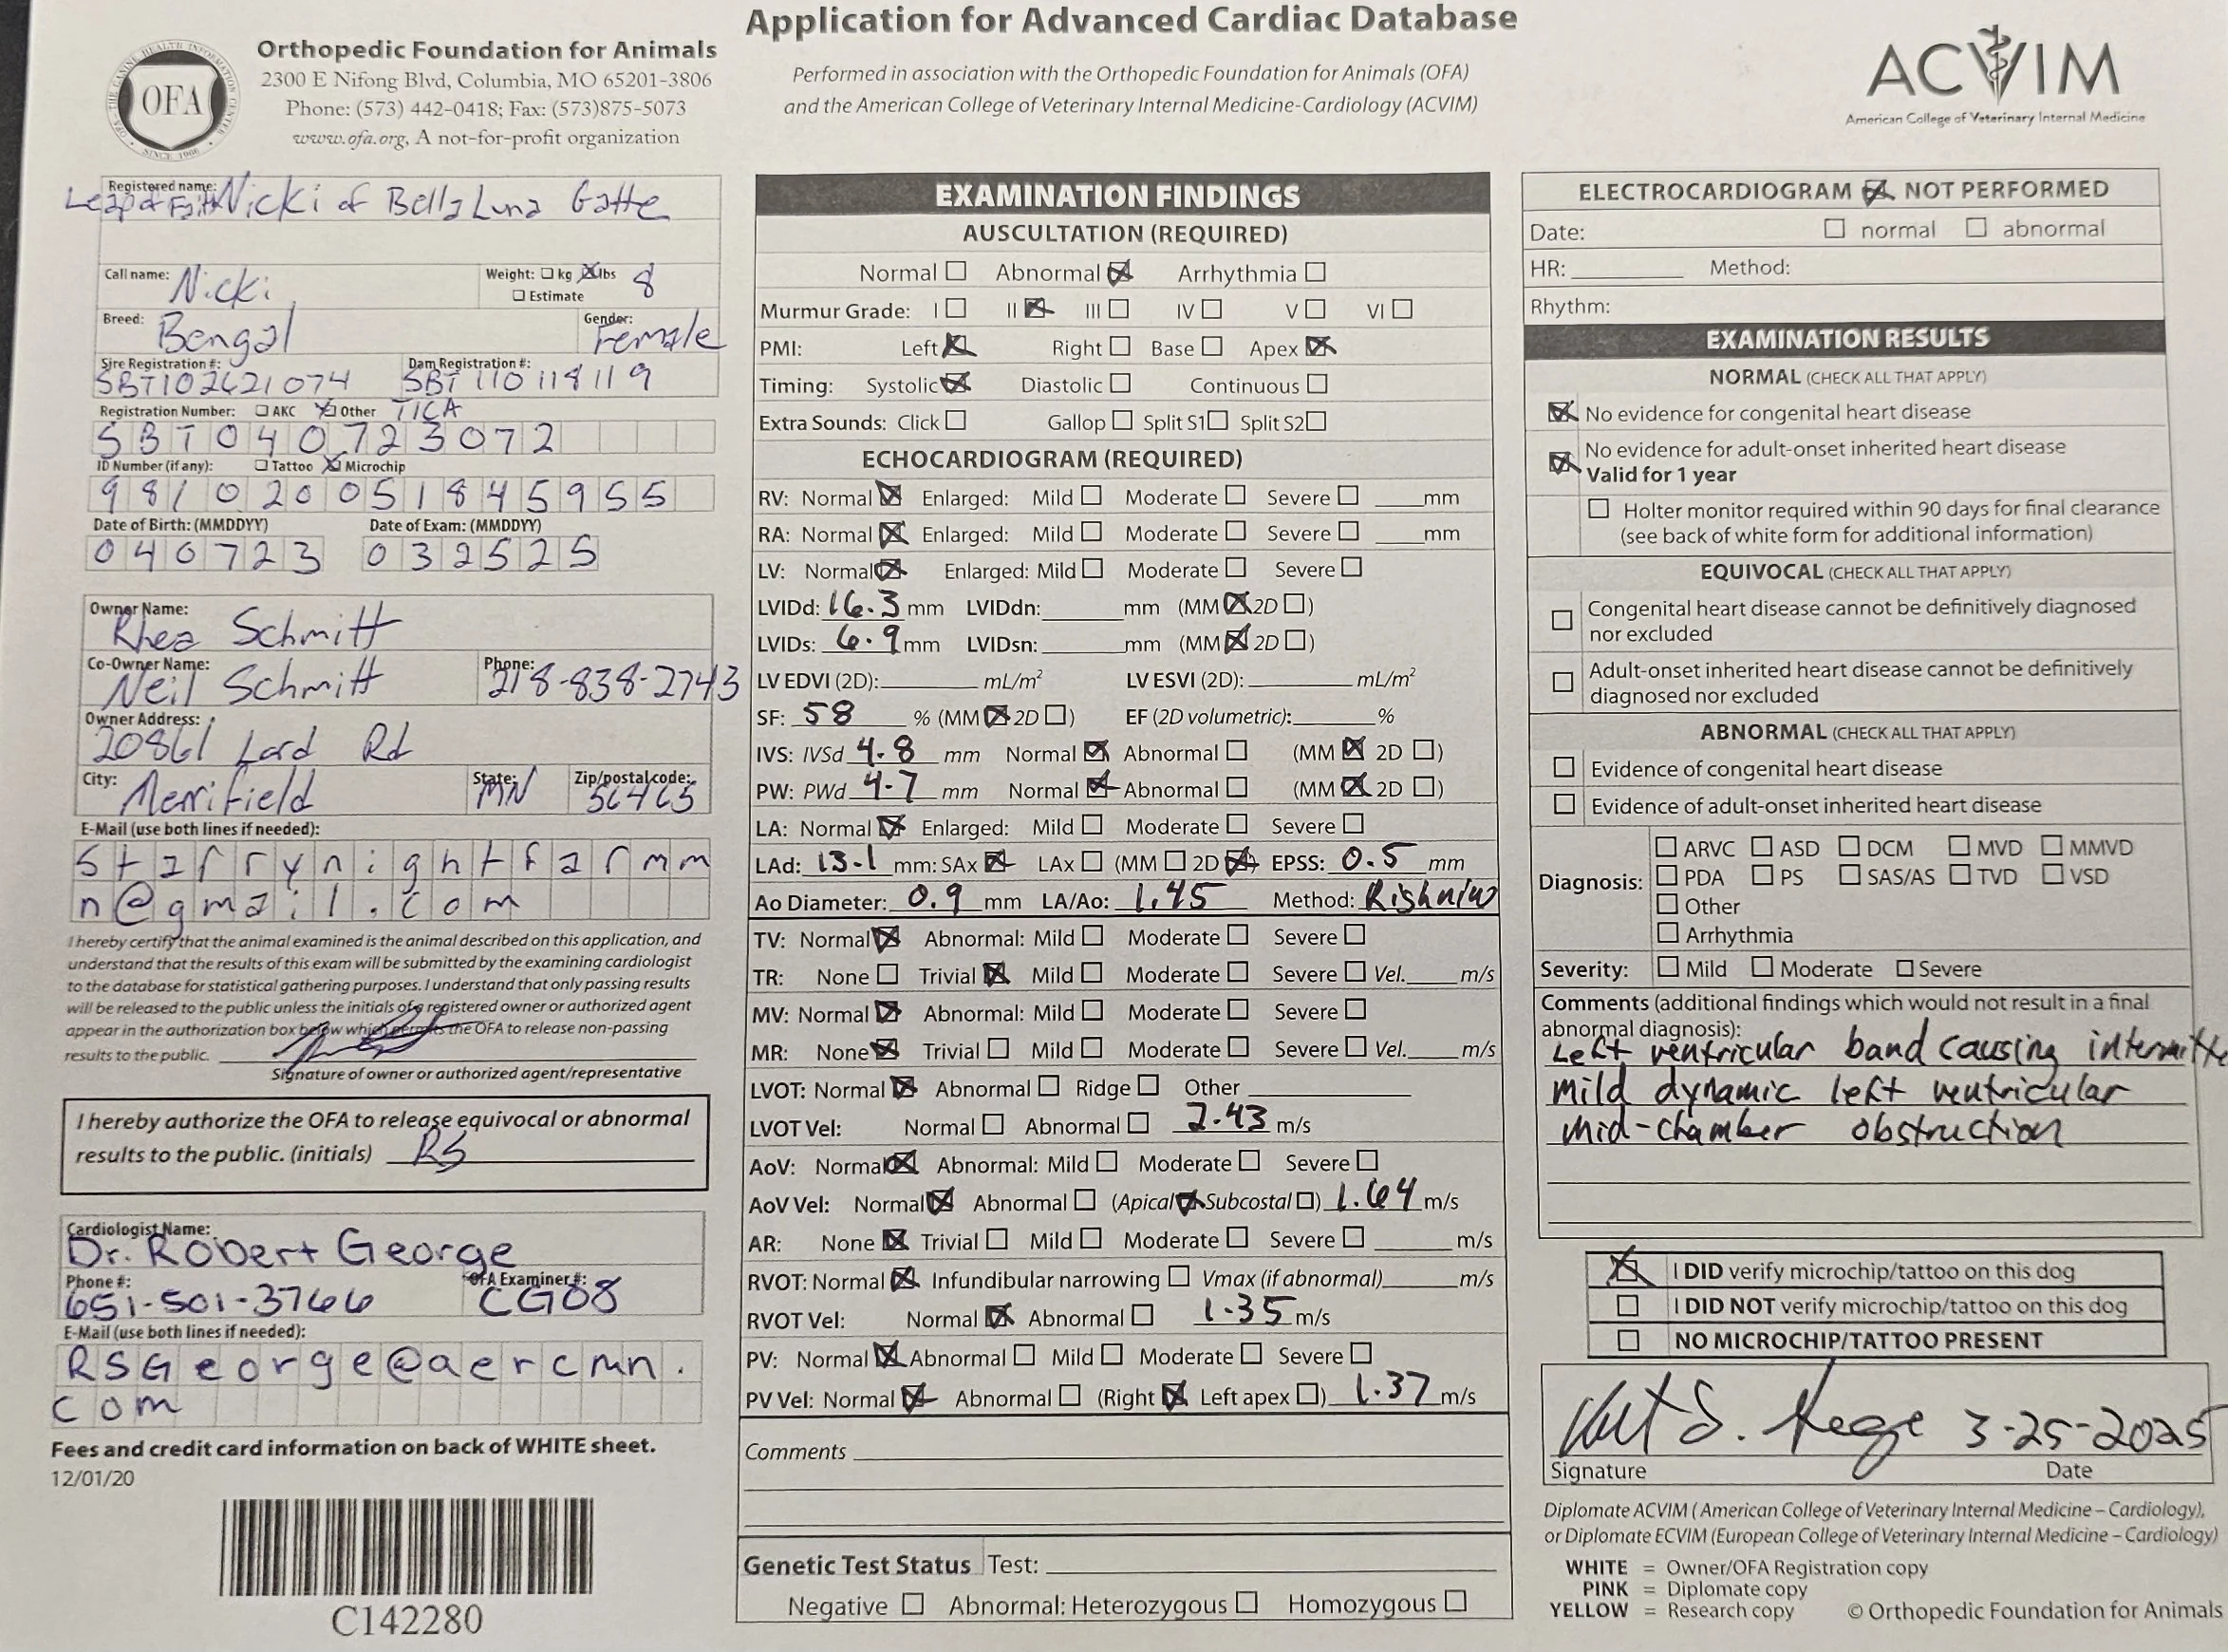 Application for Advanced Cardiac Database
Performed in association with the Orthopedic Foundation for Animals (OFA)
and the American College of Veterinary Internal Medicine-Cardiology (ACVIM)
OFA
Orthopedic Foundation for Animals
2300 E Nifong Blvd, Columbia, MO 65201-3806
Phone: (573) 442-0418; Fax: (573)875-5073
www.ofa.org, A not-for-profit organization
ACVIM
American College of Veterinary Internal Medicine
Registered name: Leap of Faith Nicki of Bella Luna Gatte
Call name: Nicki Weight: ☐ kg ☒ lbs 8
☐ Estimate
Breed: Bengal Gender: Female
Sire Registration #: SBT102621074 Dam Registration #: SBT 110118119
Registration Number: ☐ AKC ☒ Other TICA
SBT040723072
ID Number (if any): ☐ Tattoo ☒ Microchip
981020051845955
Date of Birth: (MMDDYY) Date of Exam: (MMDDYY)
040723 032525
Owner Name: Rhea Schmitt
Co-Owner Name: Neil Schmitt Phone: 218-838-2743
Owner Address: 20861 Lard Rd
City: Merrifield State: MN Zip/postal code: 56465
E-Mail (use both lines if needed):
starrynightfarmm
n@gmail.com
I hereby certify that the animal examined is the animal described on this application, and
understand that the results of this exam will be submitted by the examining cardiologist
to the database for statistical gathering purposes. I understand that only passing results
will be released to the public unless the initials of a registered owner or authorized agent
appear in the authorization box below which permits the OFA to release non-passing
results to the public.
Signature of owner or authorized agent/representative
I hereby authorize the OFA to release equivocal or abnormal
results to the public. (initials) RS
Cardiologist Name: Dr. Robert George
Phone #: 651-501-3766 OFA Examiner #: CG08
E-Mail (use both lines if needed):
RSGeorge@aercmn.
com
Fees and credit card information on back of WHITE sheet.
12/01/20
C142280
EXAMINATION FINDINGS
AUSCULTATION (REQUIRED)
Normal ☐ Abnormal ☒ Arrhythmia ☐
Murmur Grade: I ☐ II ☒ III ☐ IV ☐ V ☐ VI ☐
PMI: Left ☒ Right ☐ Base ☐ Apex ☒
Timing: Systolic ☒ Diastolic ☐ Continuous ☐
Extra Sounds: Click ☐ Gallop ☐ Split S1 ☐ Split S2 ☐
ECHOCARDIOGRAM (REQUIRED)
RV: Normal ☒ Enlarged: Mild ☐ Moderate ☐ Severe ☐ ____mm
RA: Normal ☒ Enlarged: Mild ☐ Moderate ☐ Severe ☐ ____mm
LV: Normal ☒ Enlarged: Mild ☐ Moderate ☐ Severe ☐
LVIDd: 16.3 mm LVIDdn: ____ mm (MM ☒ 2D ☐)
LVIDs: 6.9 mm LVIDsn: ____ mm (MM ☒ 2D ☐)
LV EDVI (2D): ____ mL/m² LV ESVI (2D): ____ mL/m²
SF: 58 % (MM ☒ 2D ☐) EF (2D volumetric): ____%
IVS: IVSd 4.8 mm Normal ☒ Abnormal ☐ (MM ☒ 2D ☐)
PW: PWd 4.7 mm Normal ☒ Abnormal ☐ (MM ☒ 2D ☐)
LA: Normal ☒ Enlarged: Mild ☐ Moderate ☐ Severe ☐
LAd: 13.1 mm: SAx ☒ LAx ☐ (MM ☐ 2D ☒) EPSS: 0.5 mm
Ao Diameter: 0.9 mm LA/Ao: 1.45 Method: Rishniw
TV: Normal ☒ Abnormal: Mild ☐ Moderate ☐ Severe ☐
TR: None ☐ Trivial ☒ Mild ☐ Moderate ☐ Severe ☐ Vel.____m/s
MV: Normal ☒ Abnormal: Mild ☐ Moderate ☐ Severe ☐
MR: None ☒ Trivial ☐ Mild ☐ Moderate ☐ Severe ☐ Vel.____m/s
LVOT: Normal ☒ Abnormal ☐ Ridge ☐ Other ____
LVOT Vel: Normal ☐ Abnormal ☐ 2.43 m/s
AoV: Normal ☒ Abnormal: Mild ☐ Moderate ☐ Severe ☐
AoV Vel: Normal ☒ Abnormal ☐ (Apical ☒ Subcostal ☐) 1.64 m/s
AR: None ☒ Trivial ☐ Mild ☐ Moderate ☐ Severe ☐ ____ m/s
RVOT: Normal ☒ Infundibular narrowing ☐ Vmax (if abnormal)____m/s
RVOT Vel: Normal ☒ Abnormal ☐ 1.35 m/s
PV: Normal ☒ Abnormal ☐ Mild ☐ Moderate ☐ Severe ☐
PV Vel: Normal ☒ Abnormal ☐ (Right ☒ Left apex ☐) 1.37 m/s
Comments
Genetic Test Status Test:
Negative ☐ Abnormal: Heterozygous ☐ Homozygous ☐
ELECTROCARDIOGRAM ☒ NOT PERFORMED
Date: ☐ normal ☐ abnormal
HR: ____ Method:
Rhythm:
EXAMINATION RESULTS
NORMAL (CHECK ALL THAT APPLY)
☒ No evidence for congenital heart disease
☒ No evidence for adult-onset inherited heart disease
Valid for 1 year
☐ Holter monitor required within 90 days for final clearance
(see back of white form for additional information)
EQUIVOCAL (CHECK ALL THAT APPLY)
☐ Congenital heart disease cannot be definitively diagnosed
nor excluded
☐ Adult-onset inherited heart disease cannot be definitively
diagnosed nor excluded
ABNORMAL (CHECK ALL THAT APPLY)
☐ Evidence of congenital heart disease
☐ Evidence of adult-onset inherited heart disease
☐ ARVC ☐ ASD ☐ DCM ☐ MVD ☐ MMVD
Diagnosis: ☐ PDA ☐ PS ☐ SAS/AS ☐ TVD ☐ VSD
☐ Other
☐ Arrhythmia
Severity: ☐ Mild ☐ Moderate ☐ Severe
Comments (additional findings which would not result in a final
abnormal diagnosis):
Left ventricular band causing intermitte
mild dynamic left ventricular
mid-chamber obstruction
☒ I DID verify microchip/tattoo on this dog
☐ I DID NOT verify microchip/tattoo on this dog
☐ NO MICROCHIP/TATTOO PRESENT
3-25-2025
Signature Date
Diplomate ACVIM (American College of Veterinary Internal Medicine – Cardiology),
or Diplomate ECVIM (European College of Veterinary Internal Medicine – Cardiology)
WHITE = Owner/OFA Registration copy
PINK = Diplomate copy
YELLOW = Research copy © Orthopedic Foundation for Animals